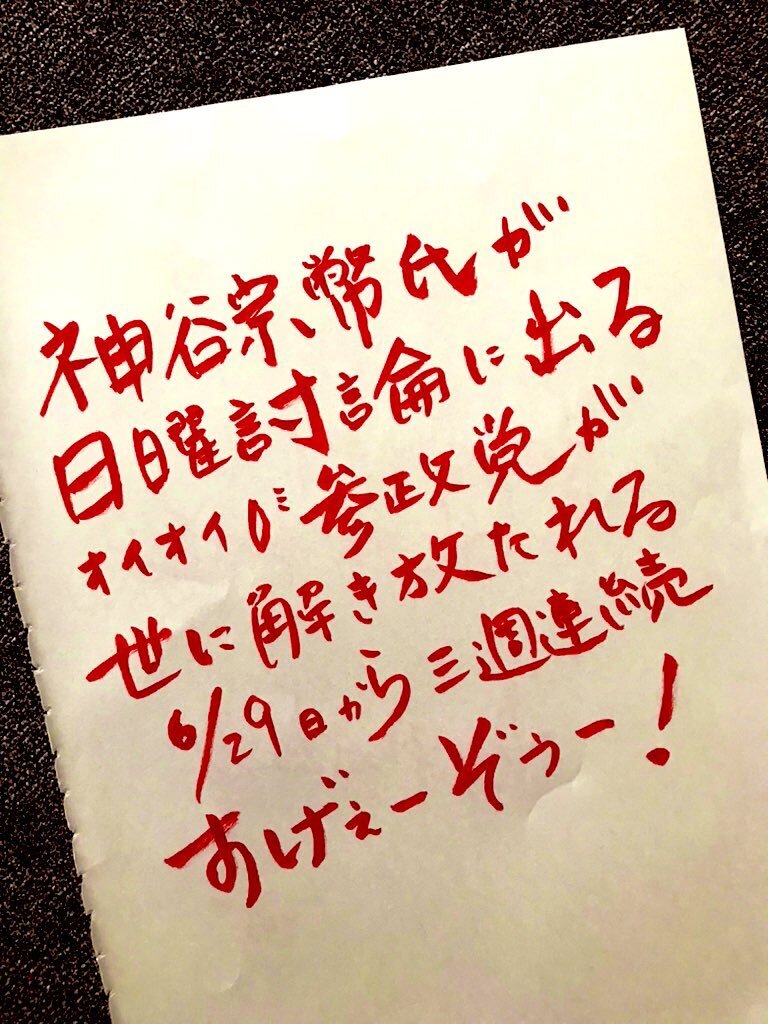 神谷宗幣氏が
日曜討論に出る
オイオイ💦参政党が
世に解き放たれる
6/29日から三週連続
すげぇーぞぅー！